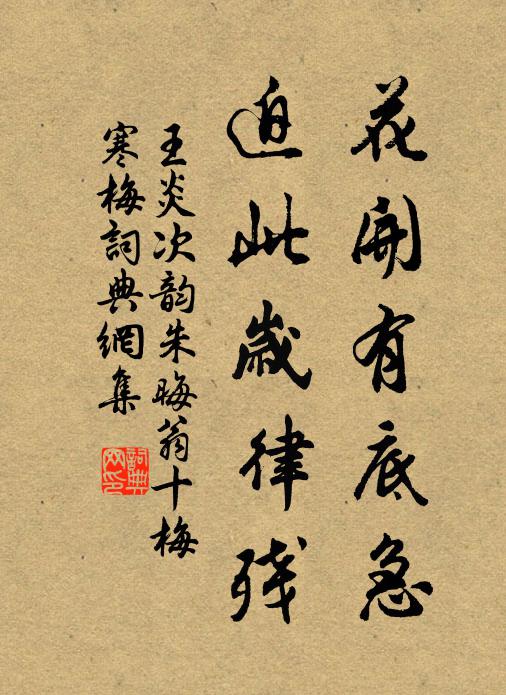 花開有底急
迫此歲律殘
王炎次韵朱晦翁十梅
寒梅詞典網集
詞典網印